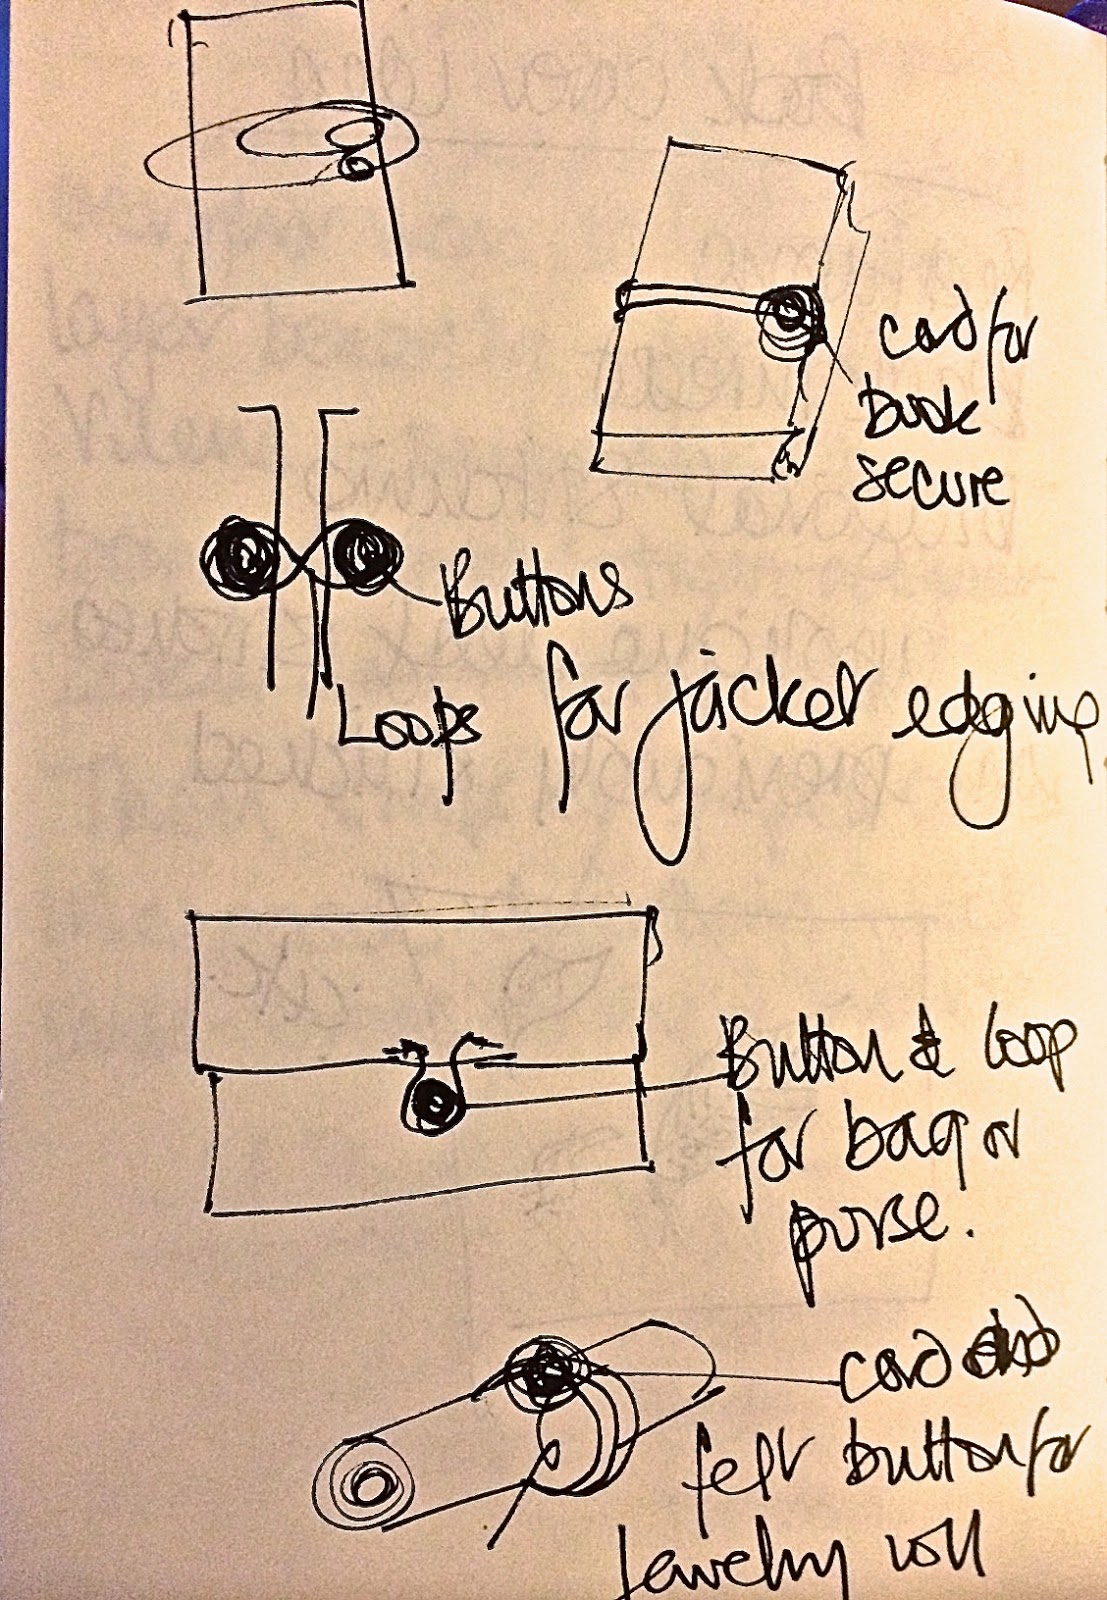 cord for
book
secure
Buttons
Loops for jacket edging
Button & loop
for bag or
purse.
cord and
felt button for
Jewelry roll